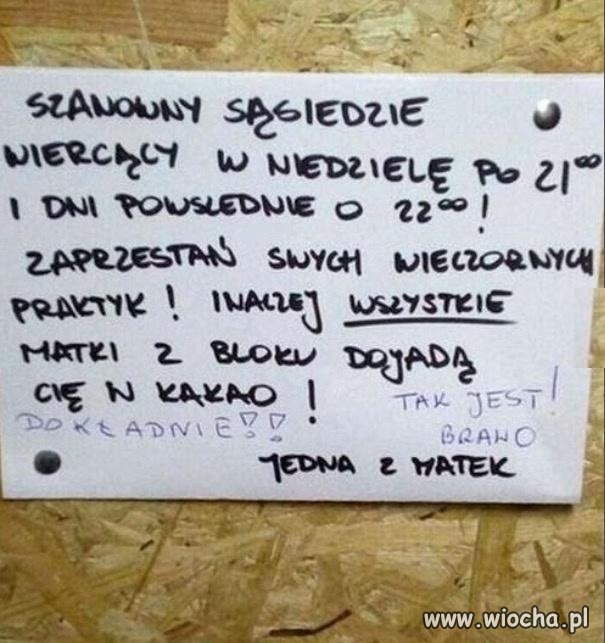 SZANOWNY SĄSIEDZIE
WIERCĄCY W NIEDZIELĘ PO 21⁰⁰
I DNI POWSLEDNIE O 22⁰⁰!
ZAPRZESTAŃ SWYCH WIECZORNYCH
PRAKTYK! INACZEJ WSZYSTKIE
MATKI Z BLOKU DOJADĄ
CIĘ W KAKAO!
TAK JEST!
DOKŁADNIE!!
BRAWO
JEDNA Z MATEK
www.wiocha.pl